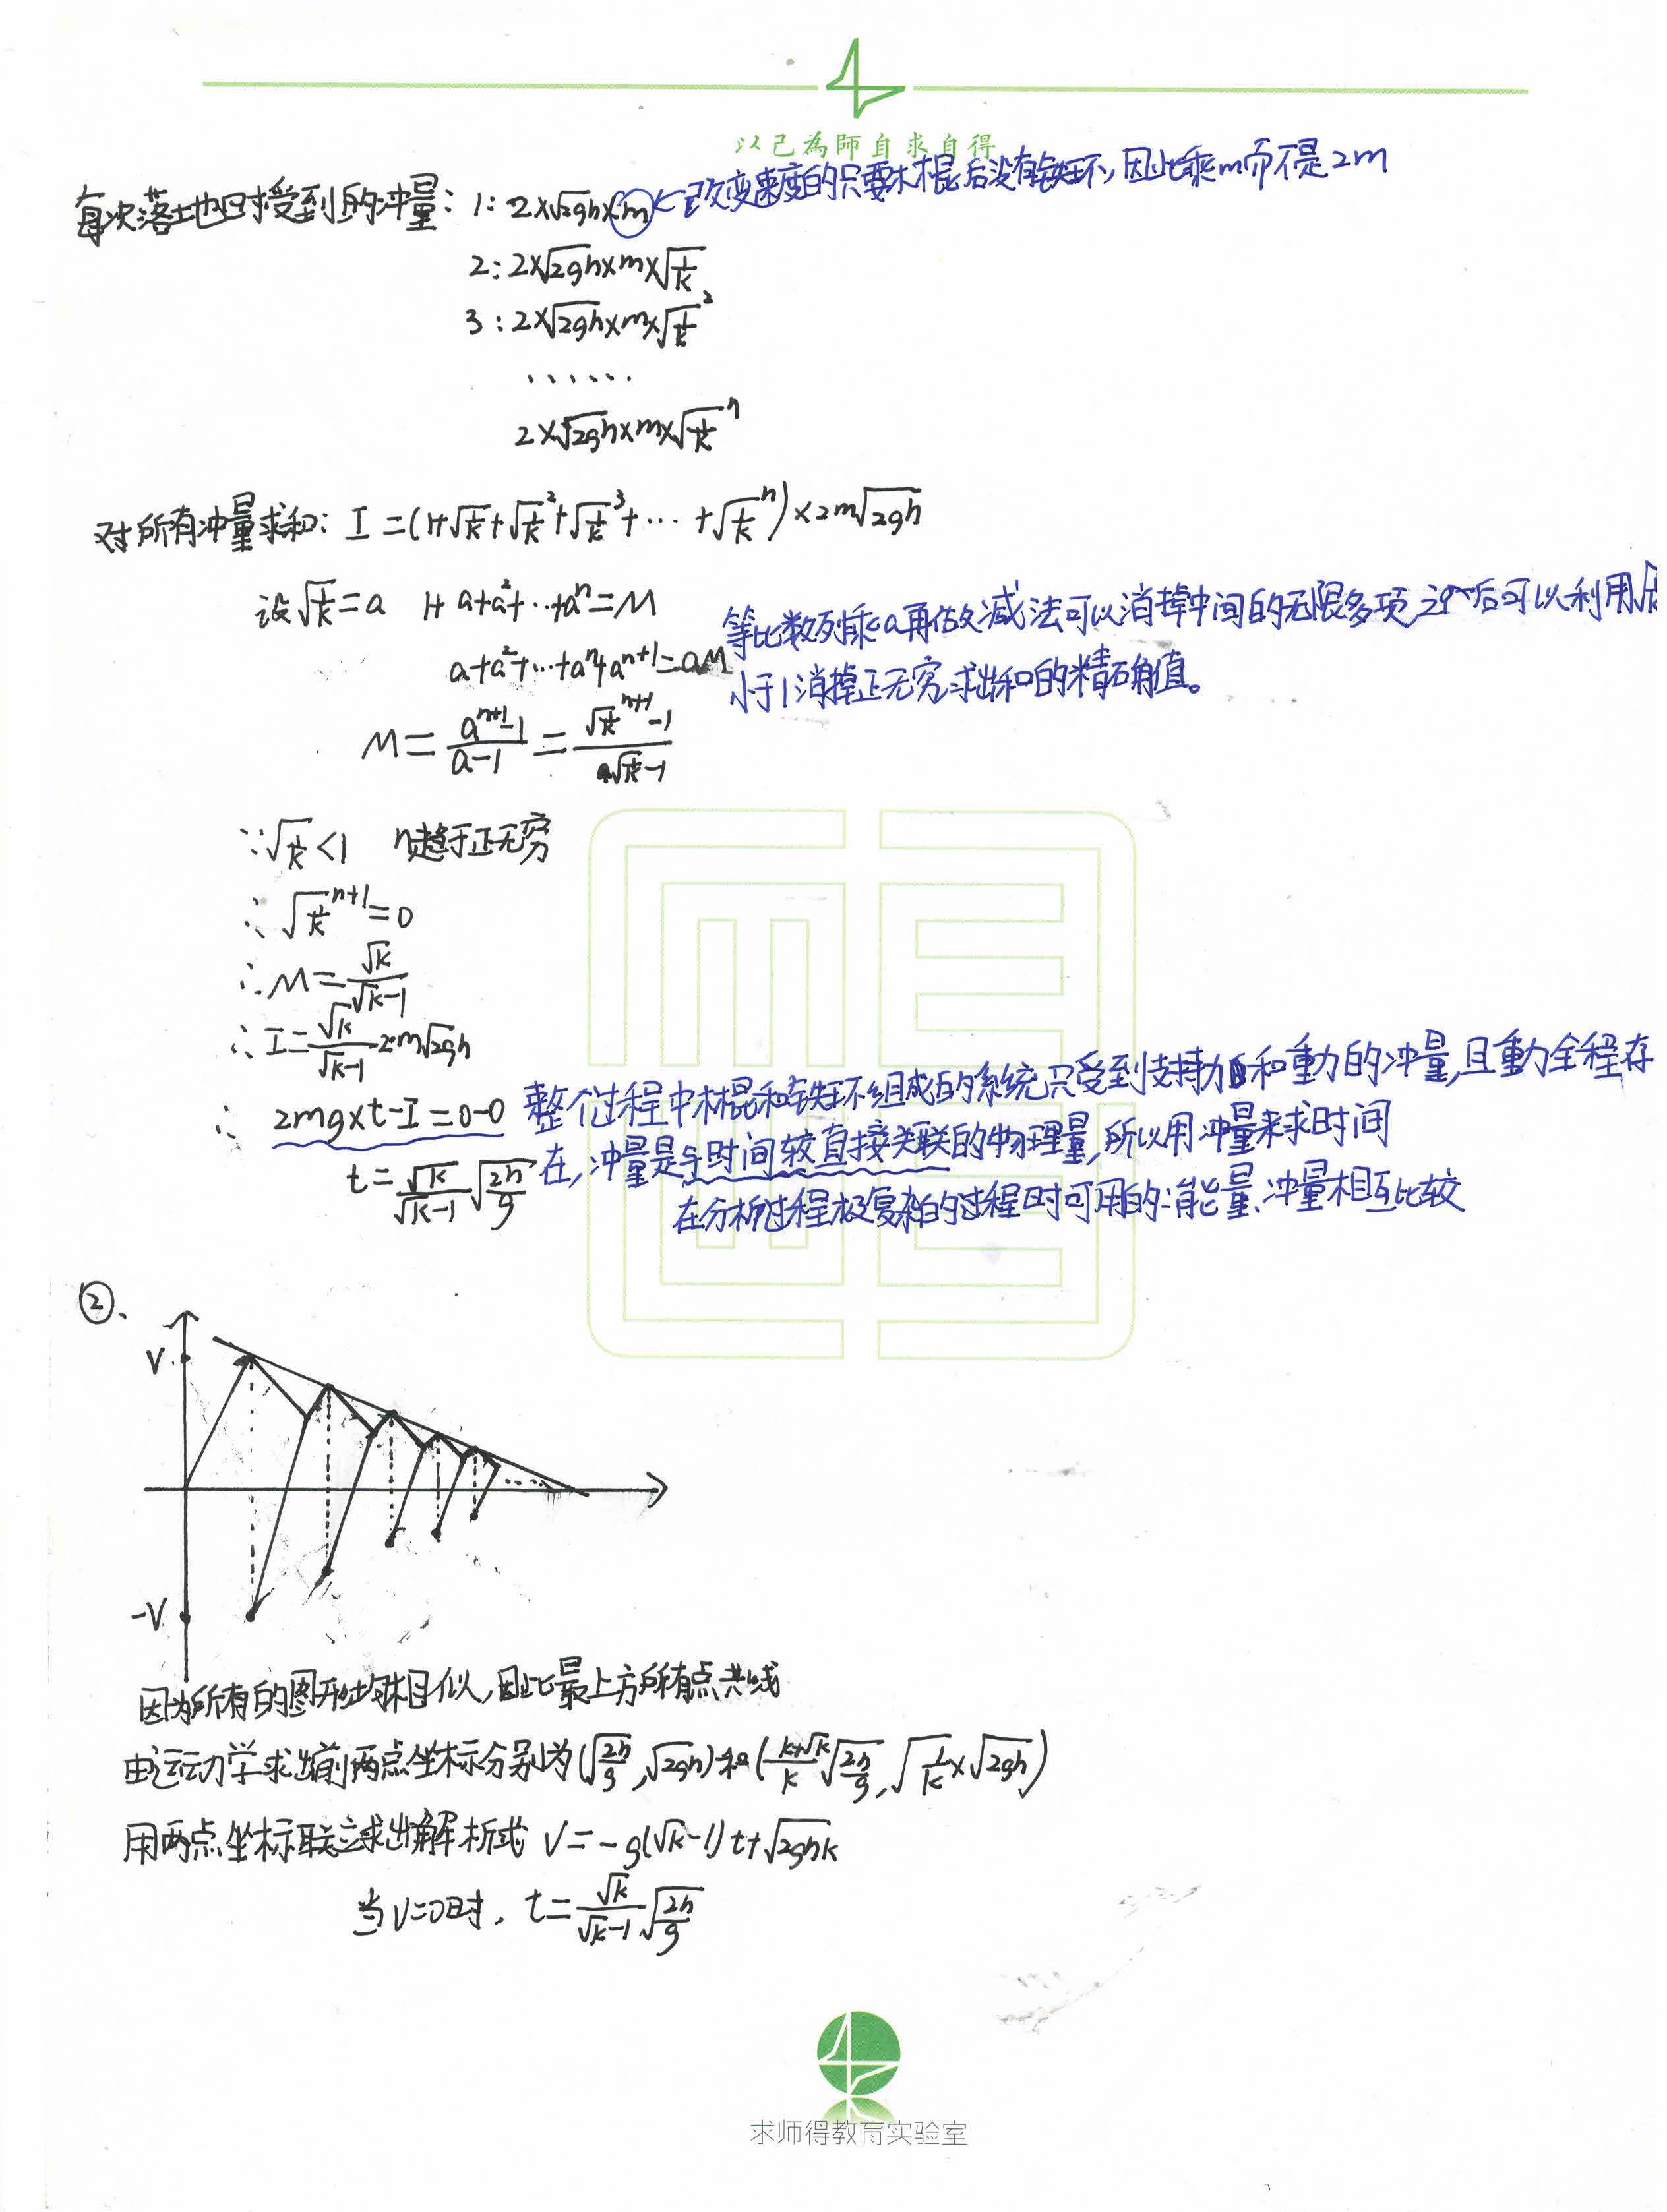 以己為師自求自得
每次落地时受到的冲量: 1: 2×√2gh×m ← 改变速度的只要木棍后没有铁环, 因此乘m而不是2m
2: 2×√2gh×m×√1/k
3: 2×√2gh×m×√1/k²
......
2×√2gh×m×√1/kⁿ
对所有冲量求和: I=(1+√1/k+√1/k²+√1/k³+…+√1/kⁿ)×2m√2gh
设√1/k=a 1+a+a²+…+aⁿ=M
等比数列乘a再做减法可以消掉中间的无限多项 之后可以利用√
a+a²+…+aⁿ+aⁿ⁺¹=aM
小于1消掉正无穷求出和的精确值。
M=(aⁿ⁺¹-1)/(a-1)=(√1/kⁿ⁺¹-1)/(√1/k-1)
∵√1/k<1 n趋于正无穷
∴√1/kⁿ⁺¹=0
∴M=√k/(√k-1)
∴I=√k/(√k-1) 2m√2gh
∴2mg×t-I=0-0 整个过程中木棍和铁环组成的系统只受到支持力和重力的冲量,且重力全程存
在,冲量是与时间较直接关联的物理量,所以用冲量来求时间
t=√k/(√k-1) √2h/g
在分析过程极复杂的过程时可用的:能量、冲量相互比较
②、
V
-V
因为所有的图形均相似,因此最上方所有点共线
由运动学求出前两点坐标分别为(√2h/g,√2gh)和((k+√k)/k √2h/g,√1/k×√2gh)
用两点坐标联立求出解析式 V=-g(√k-1)t+√2ghk
当V=0时, t=√k/(√k-1) √2h/g
求师得教育实验室